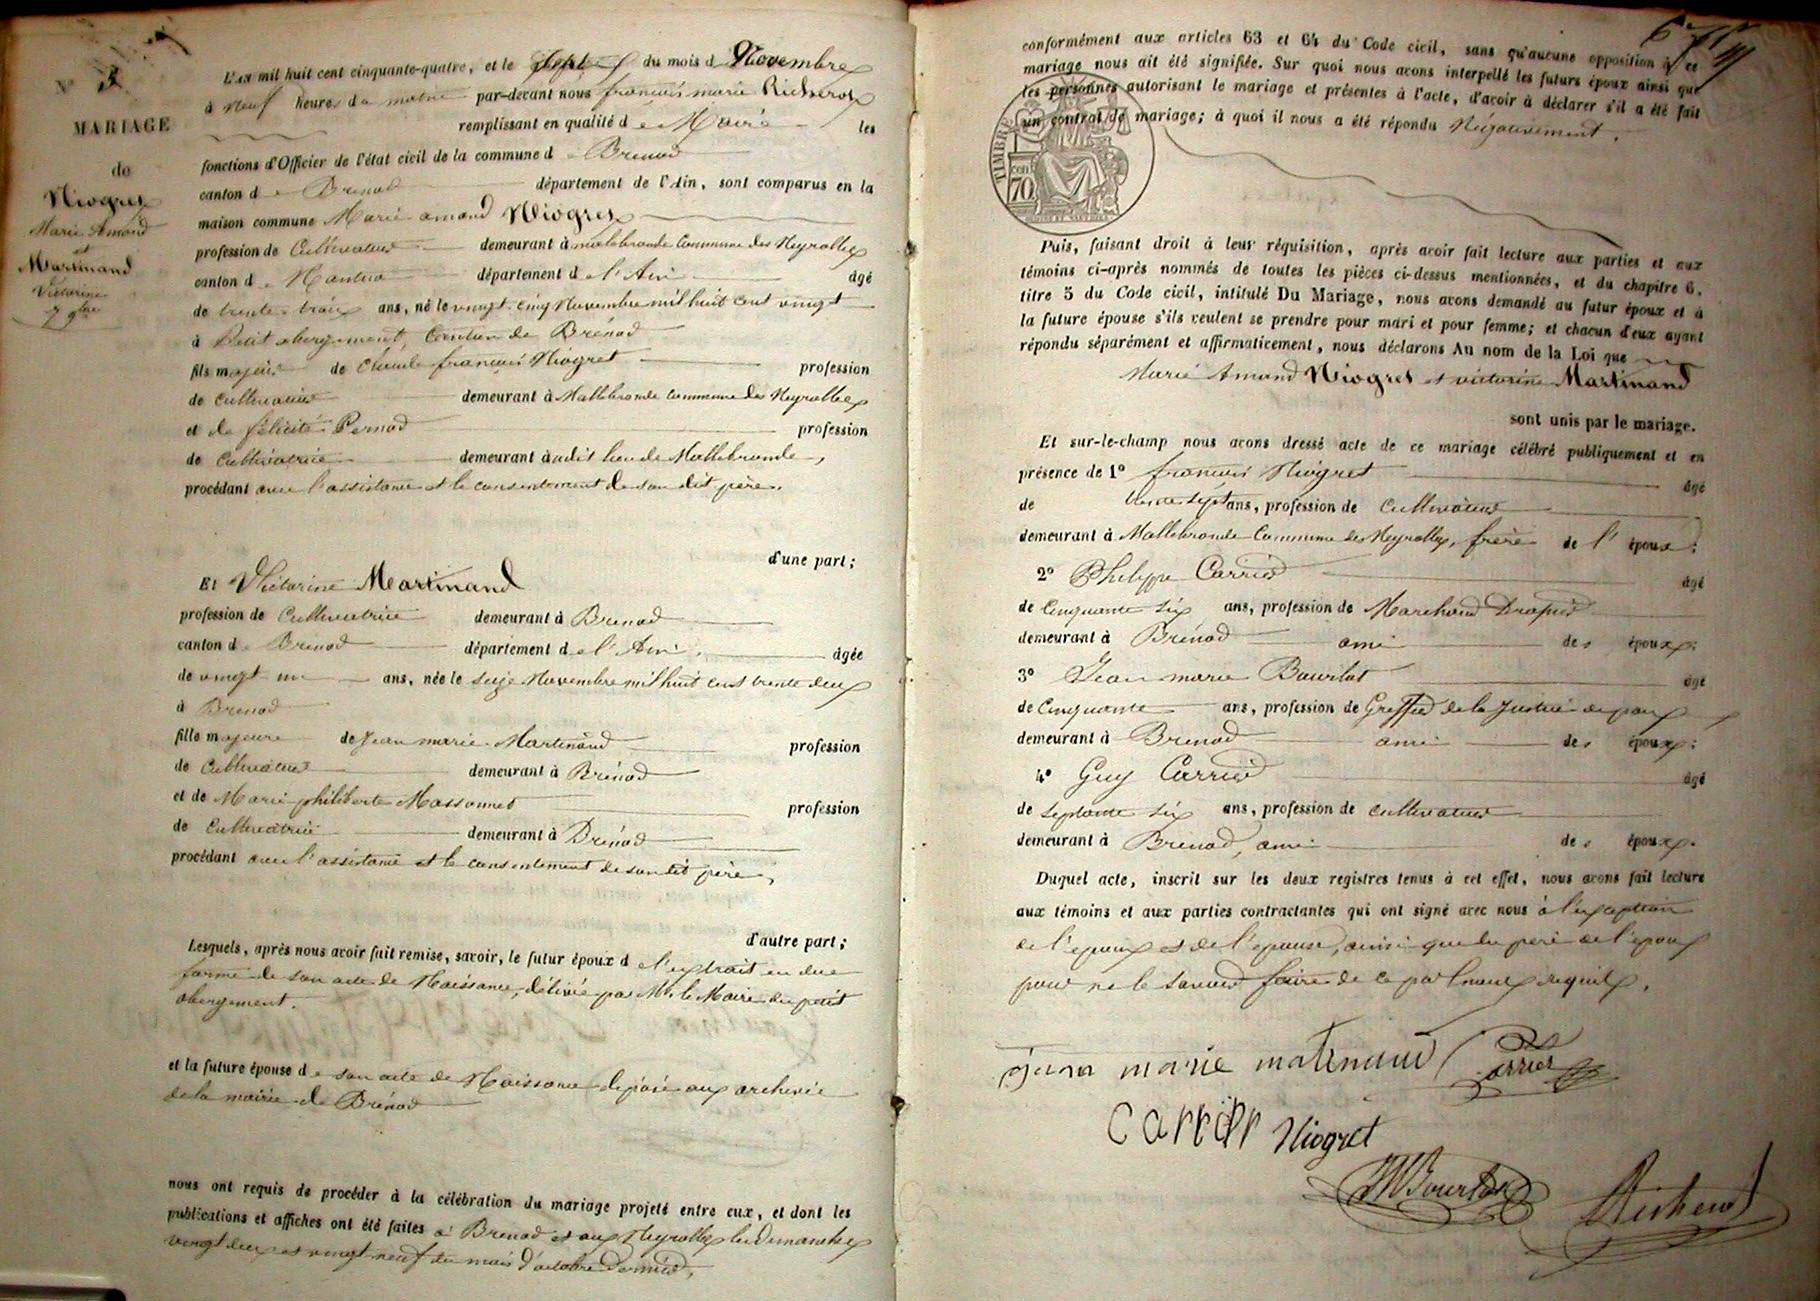 N° 3
MARIAGE
de
Niogret
Marie Amand
et
Martinand
Victorine
7 9bre
L'an mil huit cent cinquante-quatre, et le sept du mois de Novembre
à neuf heures du matin par-devant nous françois marie Richerot
remplissant en qualité de Maire les
fonctions d'Officier de l'état civil de la commune de Brénod
canton de Brénod département de l'Ain, sont comparus en la
maison commune Marie amand Niogret
profession de Cultivateur demeurant à mallebronde Commune des Neyrolles
canton de Nantua département de l'Ain âgé
de trente trois ans, né le vingt-cinq Novembre mil huit cent vingt
à Petit abergement, Canton de Brénod
fils majeur de Claude françois Niogret profession
de cultivateur demeurant à Mallebronde commune des Neyrolles
et de félicité Pernod profession
de Cultivatrice demeurant audit lieu de Mallebronde,
procédant avec l'assistance et le consentement de son dit père.
d'une part;
Et Victorine Martinand
profession de Cultivatrice demeurant à Brénod
canton de Brénod département de l'Ain, âgée
de vingt un ans, née le seize Novembre mil huit cent trente deux
à Brénod
fille majeure de Jean marie Martinand profession
de Cultivateur demeurant à Brénod
et de Marie philiberte Massonnet profession
de Cultivatrice demeurant à Brénod
procédant avec l'assistance et le consentement de son dit père,
d'autre part;
Lesquels, après nous avoir fait remise, savoir, le futur époux de l'extrait en due
forme de son acte de Naissance, délivré par Mr. le Maire du petit
abergement.
et la future épouse de son acte de Naissance déposé aux archives
de la mairie de Brénod
nous ont requis de procéder à la célébration du mariage projeté entre eux, et dont les
publications et affiches ont été faites à Brénod et aux Neyrolles les dimanches
vingt deux et vingt neuf du mois d'octobre dernier,
conformément aux articles 63 et 64 du Code civil, sans qu'aucune opposition à ce
mariage nous ait été signifiée. Sur quoi nous avons interpellé les futurs époux ainsi que
les personnes autorisant le mariage et présentes à l'acte, d'avoir à déclarer s'il a été fait
un contrat de mariage; à quoi il nous a été répondu Négativement.
TIMBRE
70
Puis, faisant droit à leur réquisition, après avoir fait lecture aux parties et aux
témoins ci-après nommés de toutes les pièces ci-dessus mentionnées, et du chapitre 6,
titre 5 du Code civil, intitulé Du Mariage, nous avons demandé au futur époux et à
la future épouse s'ils veulent se prendre pour mari et pour femme; et chacun d'eux ayant
répondu séparément et affirmativement, nous déclarons Au nom de la Loi que
Marie Amand Niogret et victorine Martinand
sont unis par le mariage.
Et sur-le-champ nous avons dressé acte de ce mariage célébré publiquement et en
présence de 1° françois Niogret âgé
de trente sept ans, profession de Cultivateur
demeurant à Mallebronde Commune des Neyrolles, frère de l'époux;
2° Philippe Carrier âgé
de Cinquante six ans, profession de Marchand Drapier
demeurant à Brénod ami des époux;
3° Jean marie Bourlot âgé
de Cinquante ans, profession de Greffier de la Justice de paix
demeurant à Brénod ami des époux;
4° Guy Carrier âgé
de septante six ans, profession de cultivateur
demeurant à Brénod, ami des époux.
Duquel acte, inscrit sur les deux registres tenus à cet effet, nous avons fait lecture
aux témoins et aux parties contractantes qui ont signé avec nous à l'exception
de l'époux et de l'épouse, ainsi que du père de l'époux
pour ne le savoir faire de ce par nous requis.
jean marie matinand Carrier
carrier Niogret
JM Bourlot Richerot